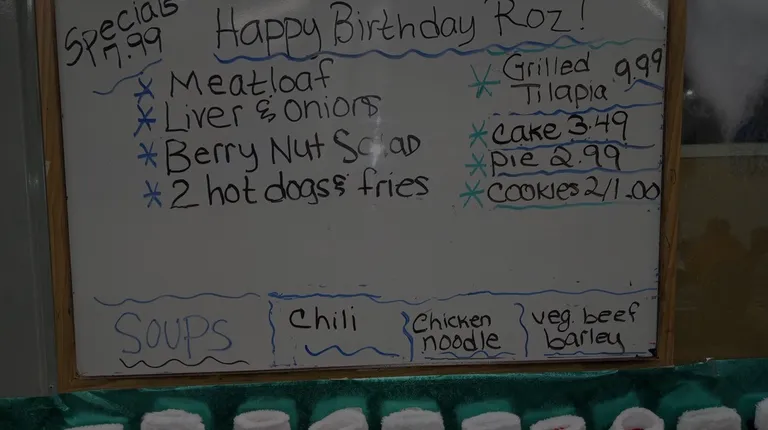 Specials
7.99
Happy Birthday Roz!
* Meatloaf
* Liver & Onions
* Berry Nut Salad
* 2 hot dogs & fries
* Grilled 9.99
Tilapia
* Cake 3.49
* Pie 2.99
* Cookies 2/1.00
Soups
Chili
Chicken
noodle
veg. beef
barley